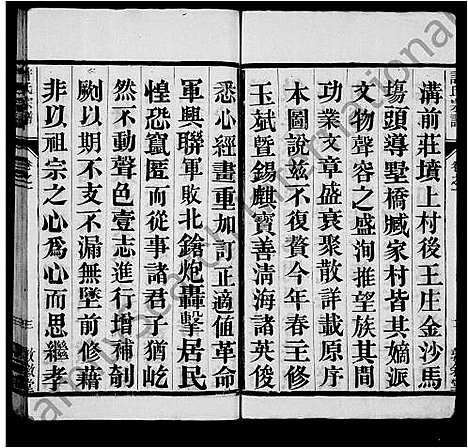 溝前莊墳上村後王庄金沙馬
塲頭導墅橋臧家村皆其嫡派
文物聲容之盛洵推望族其間
功業文章盛衰聚散詳載原序
本圖說茲不復贅今年春主修
玉斌曁錫麒寶善清海諸英俊
悉心經畫重加訂正適値革命
軍興聯軍敗北鎗炮轟擊居民
惶恐竄匿而從事諸君子猶屹
然不動聲色壹志進行增補剞
劂以期不漏無墜前修藉
非以祖宗之心爲心而思繼孝